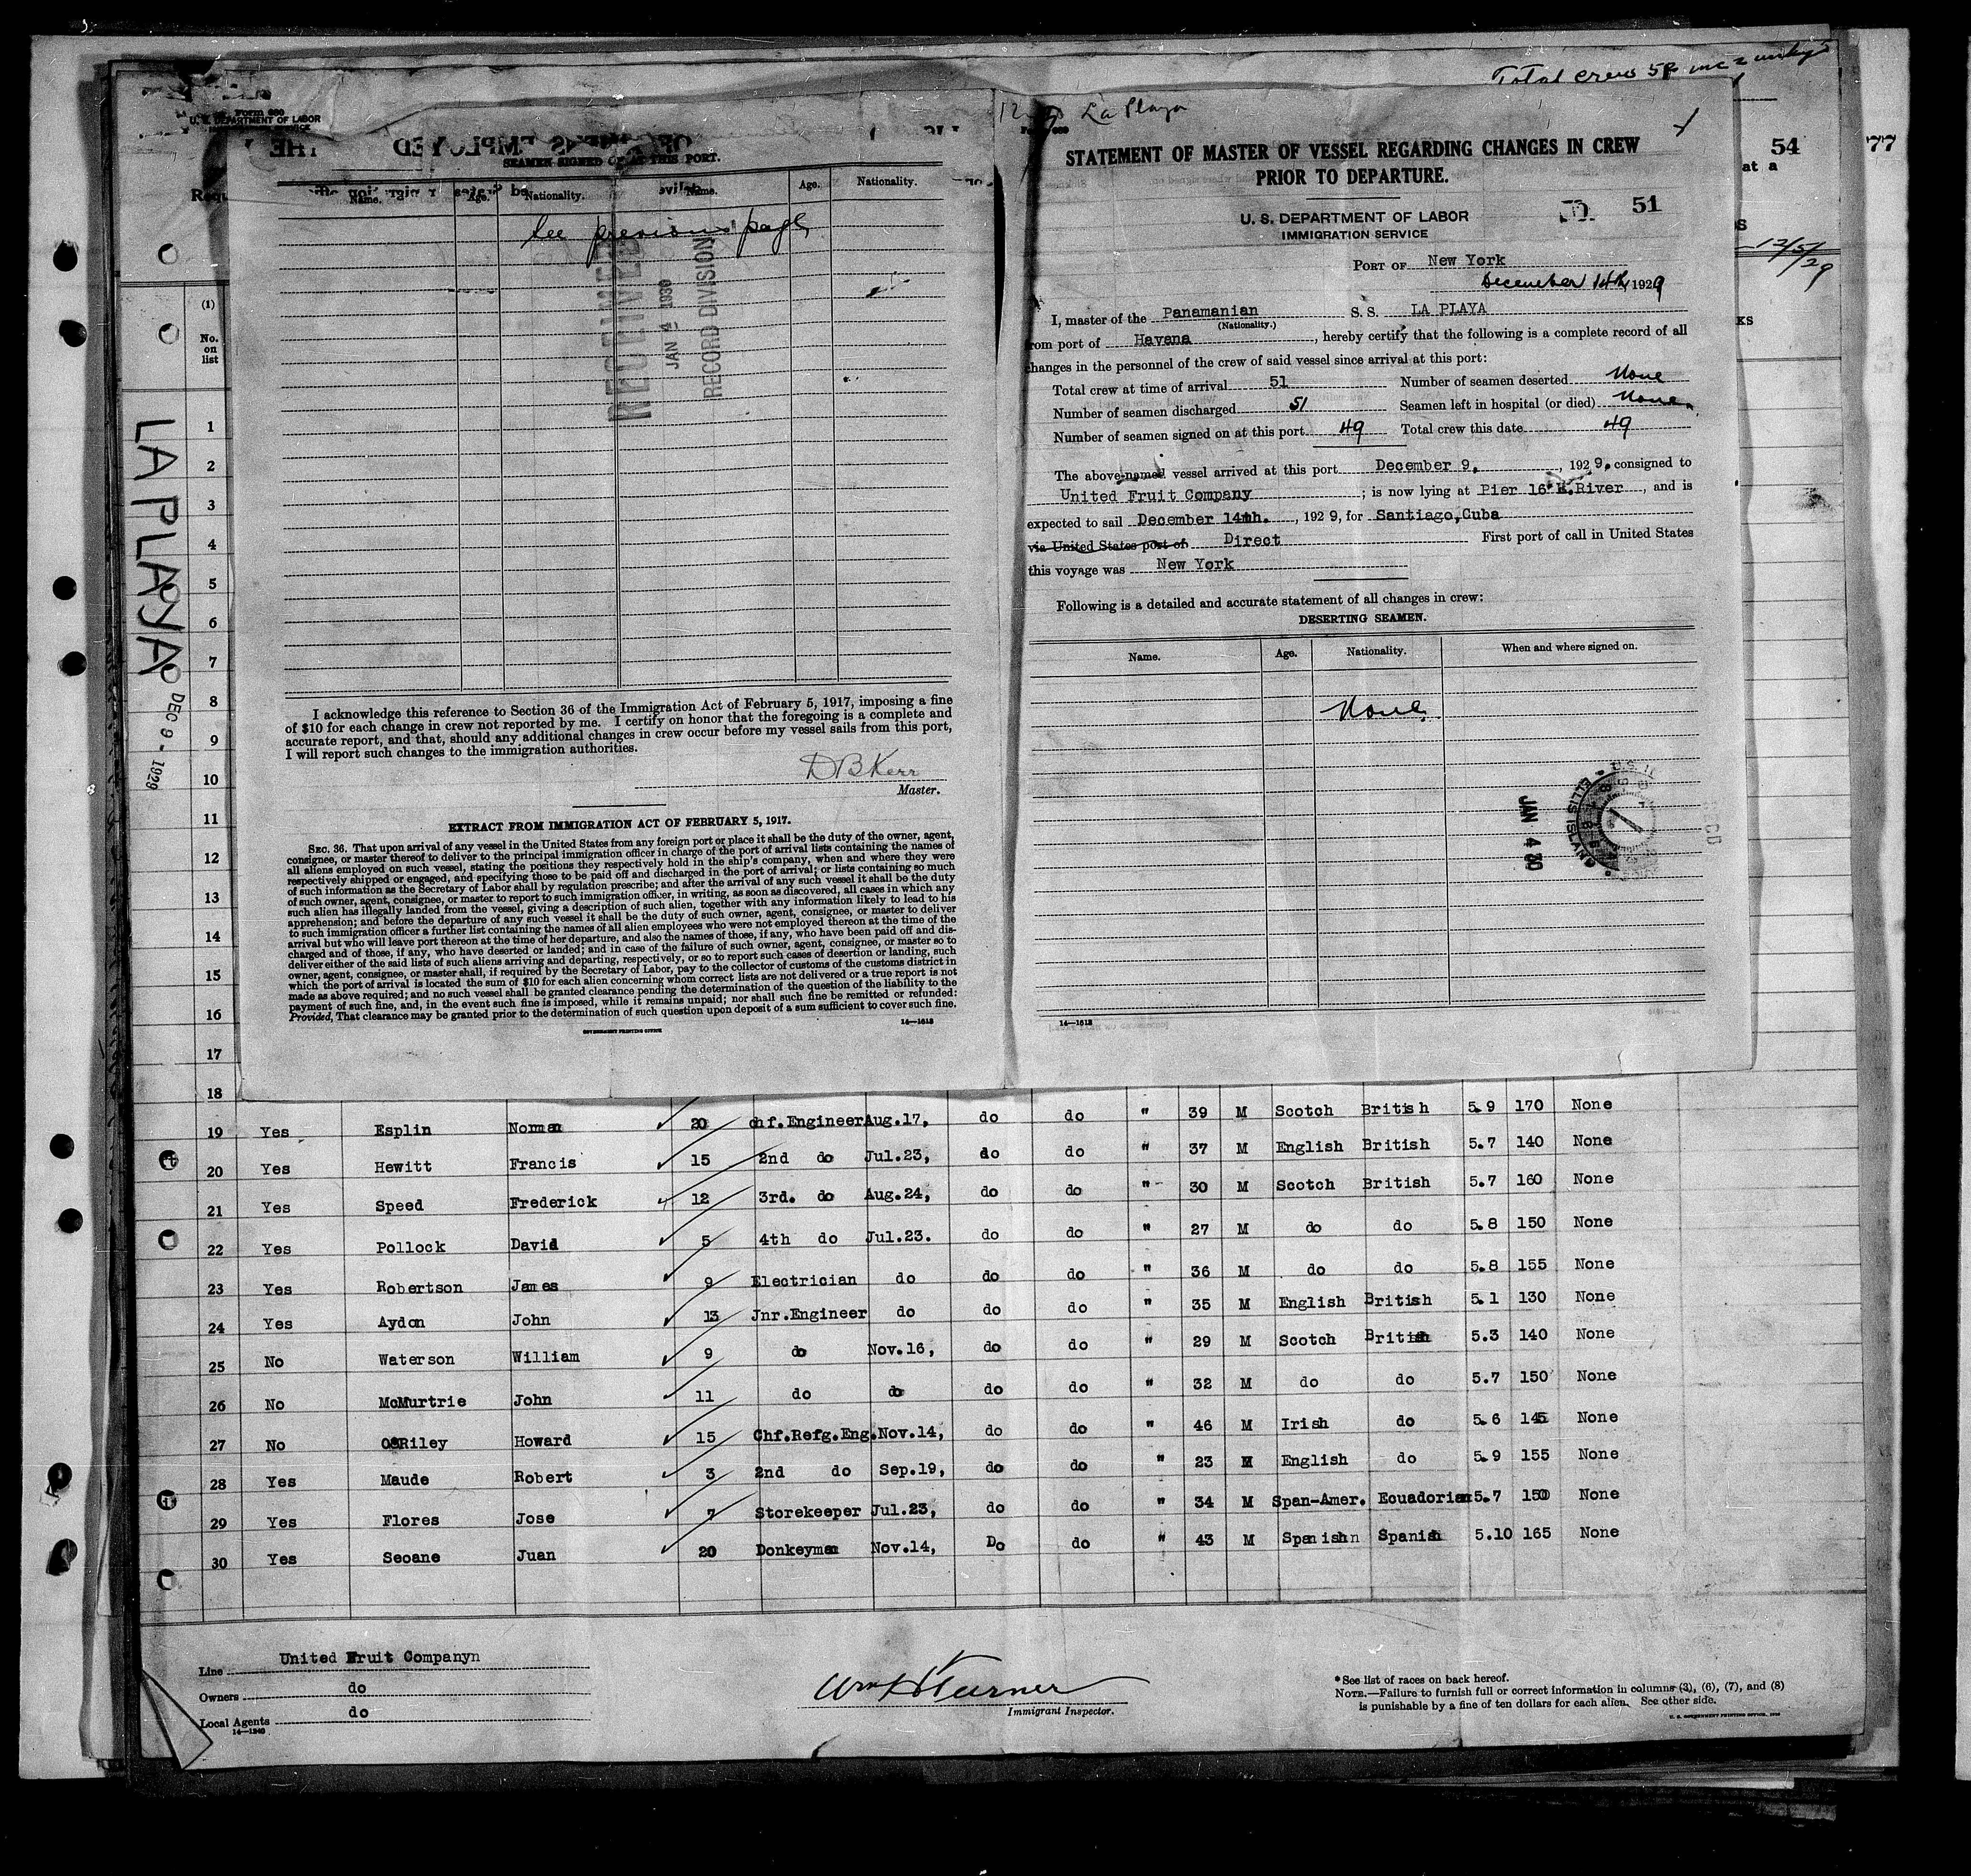 Total crew 52 inc 2 wrkys
Form 680
U. S. DEPARTMENT OF LABOR
SEAMEN SIGNED ON AT THIS PORT.
Name. Age. Nationality. Name. Age. Nationality.
See previous page
RECEIVED
JAN 4 1930
RECORD DIVISION
I acknowledge this reference to Section 36 of the Immigration Act of February 5, 1917, imposing a fine
of $10 for each change in crew not reported by me. I certify on honor that the foregoing is a complete and
accurate report, and that, should any additional changes in crew occur before my vessel sails from this port,
I will report such changes to the immigration authorities.
D B Kerr
Master.
EXTRACT FROM IMMIGRATION ACT OF FEBRUARY 5, 1917.
SEC. 36. That upon arrival of any vessel in the United States from any foreign port or place it shall be the duty of the owner, agent,
consignee, or master thereof to deliver to the principal immigration officer in charge of the port of arrival lists containing the names of
all aliens employed on such vessel, stating the positions they respectively hold in the ship's company, when and where they were
respectively shipped or engaged, and specifying those to be paid off and discharged in the port of arrival; or lists containing so much
of such information as the Secretary of Labor shall by regulation prescribe; and after the arrival of any such vessel it shall be the duty
of such owner, agent, consignee, or master to report to such immigration officer, in writing, as soon as discovered, all cases in which any
such alien has illegally landed from the vessel, giving a description of such alien, together with any information likely to lead to his
apprehension; and before the departure of any such vessel it shall be the duty of such owner, agent, consignee, or master to deliver
to such immigration officer a further list containing the names of all alien employees who were not employed thereon at the time of the
arrival but who will leave port thereon at the time of her departure, and also the names of those, if any, who have been paid off and dis-
charged and of those, if any, who have deserted or landed; and in case of the failure of such owner, agent, consignee, or master so to
deliver either of the said lists of such aliens arriving and departing, respectively, or so to report such cases of desertion or landing, such
owner, agent, consignee, or master shall, if required by the Secretary of Labor, pay to the collector of customs of the customs district in
which the port of arrival is located the sum of $10 for each alien concerning whom correct lists are not delivered or a true report is not
made as above required; and no such vessel shall be granted clearance pending the determination of the question of the liability to the
payment of such fine, and, in the event such fine is imposed, while it remains unpaid; nor shall such fine be remitted or refunded:
Provided, That clearance may be granted prior to the determination of such question upon deposit of a sum sufficient to cover such fine.
GOVERNMENT PRINTING OFFICE 14—1612
La Playa
STATEMENT OF MASTER OF VESSEL REGARDING CHANGES IN CREW
PRIOR TO DEPARTURE.
U. S. DEPARTMENT OF LABOR
IMMIGRATION SERVICE
51
PORT OF New York
December 14th, 1929
I, master of the Panamanian S. S. LA PLAYA
(Nationality.)
from port of Havana, hereby certify that the following is a complete record of all
changes in the personnel of the crew of said vessel since arrival at this port:
Total crew at time of arrival 51 Number of seamen deserted None
Number of seamen discharged 51 Seamen left in hospital (or died) None
Number of seamen signed on at this port 49 Total crew this date 49
The above-named vessel arrived at this port December 9, , 1929, consigned to
United Fruit Company ; is now lying at Pier 16 E.River , and is
expected to sail December 14th. , 1929, for Santiago,Cuba
via United States port of Direct First port of call in United States
this voyage was New York
Following is a detailed and accurate statement of all changes in crew:
DESERTING SEAMEN.
Name. Age. Nationality. When and where signed on.
None
ELLIS ISLAND
JAN 4 30
REC'D
14—1612
54
77
at a
12/5/29
(1)
No. on list
LA PLAYA
DEC 9 - 1929
1
2
3
4
5
6
7
8
9
10
11
12
13
14
15
16
17
18
19 Yes Esplin Norman 20 Chf.Engineer Aug.17, do do " 39 M Scotch British 5.9 170 None
20 Yes Hewitt Francis 15 2nd do Jul.23, do do " 37 M English British 5.7 140 None
21 Yes Speed Frederick 12 3rd. do Aug.24, do do " 30 M Scotch British 5.7 160 None
22 Yes Pollock David 5 4th do Jul.23. do do " 27 M do do 5.8 150 None
23 Yes Robertson James 9 Electrician do do do " 36 M do do 5.8 155 None
24 Yes Aydon John 13 Jnr.Engineer do do do " 35 M English British 5.1 130 None
25 No Waterson William 9 do Nov.16, do do " 29 M Scotch British 5.3 140 None
26 No McMurtrie John 11 do do do do " 32 M do do 5.7 150 None
27 No O'Riley Howard 15 Chf.Refg.Eng. Nov.14, do do " 46 M Irish do 5.6 145 None
28 Yes Maude Robert 3 2nd do Sep.19, do do " 23 M English do 5.9 155 None
29 Yes Flores Jose 7 Storekeeper Jul.23, do do " 34 M Span-Amer. Ecuadorian 5.7 150 None
30 Yes Seoane Juan 20 Donkeyman Nov.14, Do do " 43 M Spanishn Spanish 5.10 165 None
Line United Fruit Companyn
Owners do
Local Agents do
14—1240
Wm H Turner
Immigrant Inspector.
* See list of races on back hereof.
NOTE.—Failure to furnish full or correct information in columns (3), (6), (7), and (8)
is punishable by a fine of ten dollars for each alien. See other side.